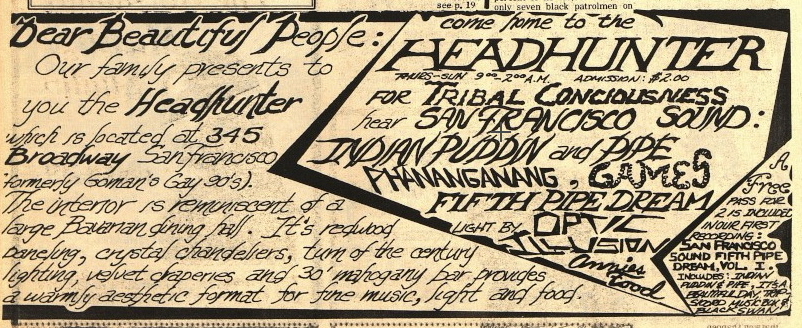 see p. 19
only seven black patrolmen on
Dear Beautiful People:
Our family presents to
you the Headhunter
which is located at 345
Broadway San Francisco
formerly Goman's Gay 90's).
The interior is reminescent of a
large Bavarian dining hall. It's redwood
paneling, crystal chandeliers, turn of the century
lighting, velvet draperies and 30' mahogany bar provides
a warmly aesthetic format for fine music, light and food.
come home to the
HEADHUNTER
THURS-SUN 9⁰⁰-2⁰⁰ A.M. ADMISSION: $2.00
FOR TRIBAL CONCIOUSNESS
hear SAN FRANCISCO SOUND:
INDIAN PUDDIN and PIPE
PHANANGANANG, GAMES
FIFTH PIPE DREAM
LIGHT BY OPTIC
ILLUSION
Annies
Food
A
Free
PASS FOR
2 IS INCLUDED
IN OUR FIRST
RECORDING:
SAN FRANCISCO
SOUND FIFTH PIPE
DREAM, VOL. I.
INCLUDES: INDIAN
PUDDIN & PIPE, IT'S A
BEAUTIFUL DAY, TRIP-
SICHORD MUSIC BOX &
BLACK SWAN